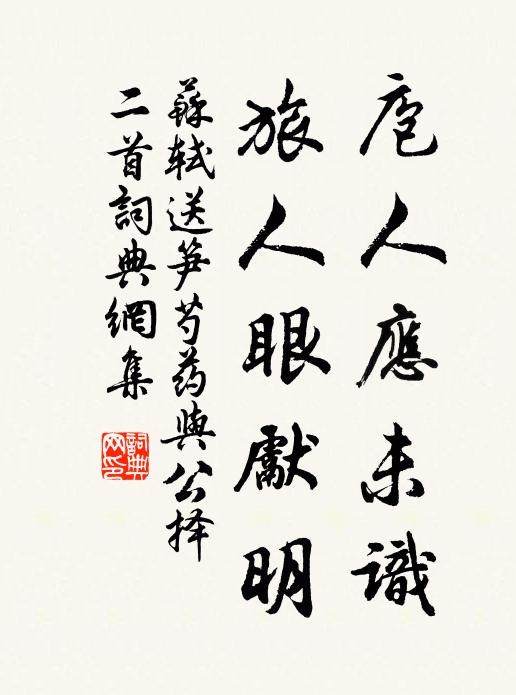 庖人應未識
旅人眼獻明
蘇軾送笋芍药與公择
二首詞典網集
詞典网印